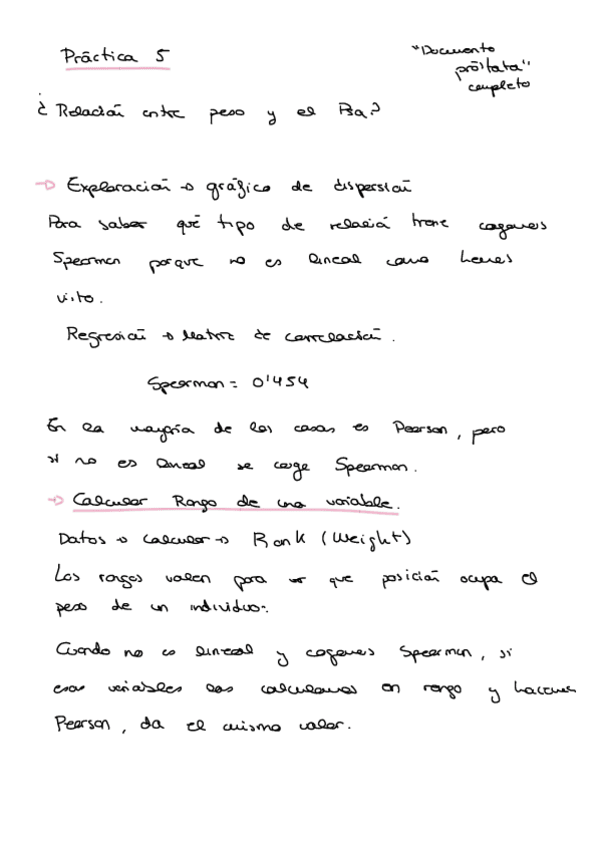 Práctica 5
"Documento
próstata"
completo
¿Relación entre peso y el Psa?
→ Exploración → gráfico de dispersión
Para saber qué tipo de relación tiene cogemos
Spearman porque no es lineal como hemos
visto.
Regresión → Matriz de correlación.
Spearman = 0'454
En la mayoría de los casos es Pearson, pero
si no es lineal se coge Spearman.
→ Calcular Rango de una variable.
Datos → calcular → Rank (Weight)
Los rangos valen para ver que posición ocupa el
peso de un individuo.
Cuando no es lineal y cogemos Spearman, si
esas variables las calculamos en rango y hacemos
Pearson, da el mismo valor.